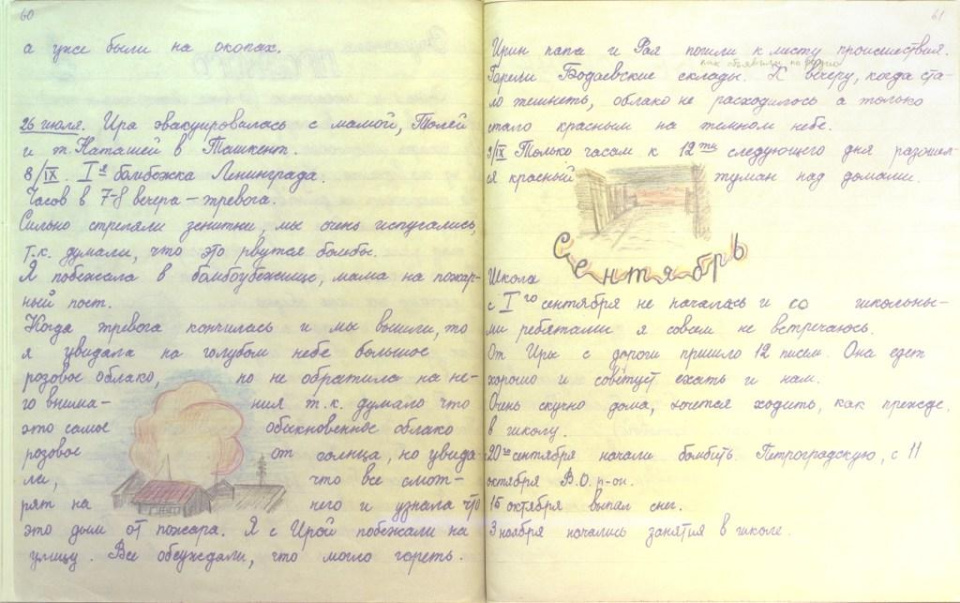 60
а уже были на окопах.
26 июля. Ира эвакуировалась с мамой, Толей
и т. Наташей в Ташкент.
8/IX. Iя бамбёжка Ленинграда.
Часов в 7-8 вечера – тревога.
Сильно стреляли зенитки, мы очень испугались,
т.к. думали, что это рвутся бомбы.
Я побежала в бомбоубежище, мама на пожар-
ный пост.
Когда тревога кончилась и мы вышли, то
я увидала на голубом небе большое
розовое облако, но не обратила на не-
го внима- ния т.к. думала что
это самое обыкновенное облако
розовое от солнца, но увида-
ли, что все смот-
рят на него и узнала что
это дым от пожара. Я с Ирой побежали на
улицу. Все обсуждали, что могло гореть.
61
Ирин папа и Рая пошли к месту происшествия.
как объявили по радио
Горели Бодаевские склады. К вечеру, когда ста-
ло темнеть, облако не расходилось а только
стало красным на темном небе.
9/IX Только часам к 12ти следующего дня разошел-
ся красный туман над домами.
Сентябрь
Школа
с Iго сентября не началась и со школьны-
ми ребятами я совсем не встречаюсь.
От Иры с дороги пришло 12 писем. Она едет
хорошо и советует ехать и нам.
Очень скучно дома, хочется ходить, как прежде,
в школу.
20го сентября начали бомбить Петроградскую, с 11
октября В.О. р-он.
15 октября выпал снег.
3 ноября начались занятия в школе.